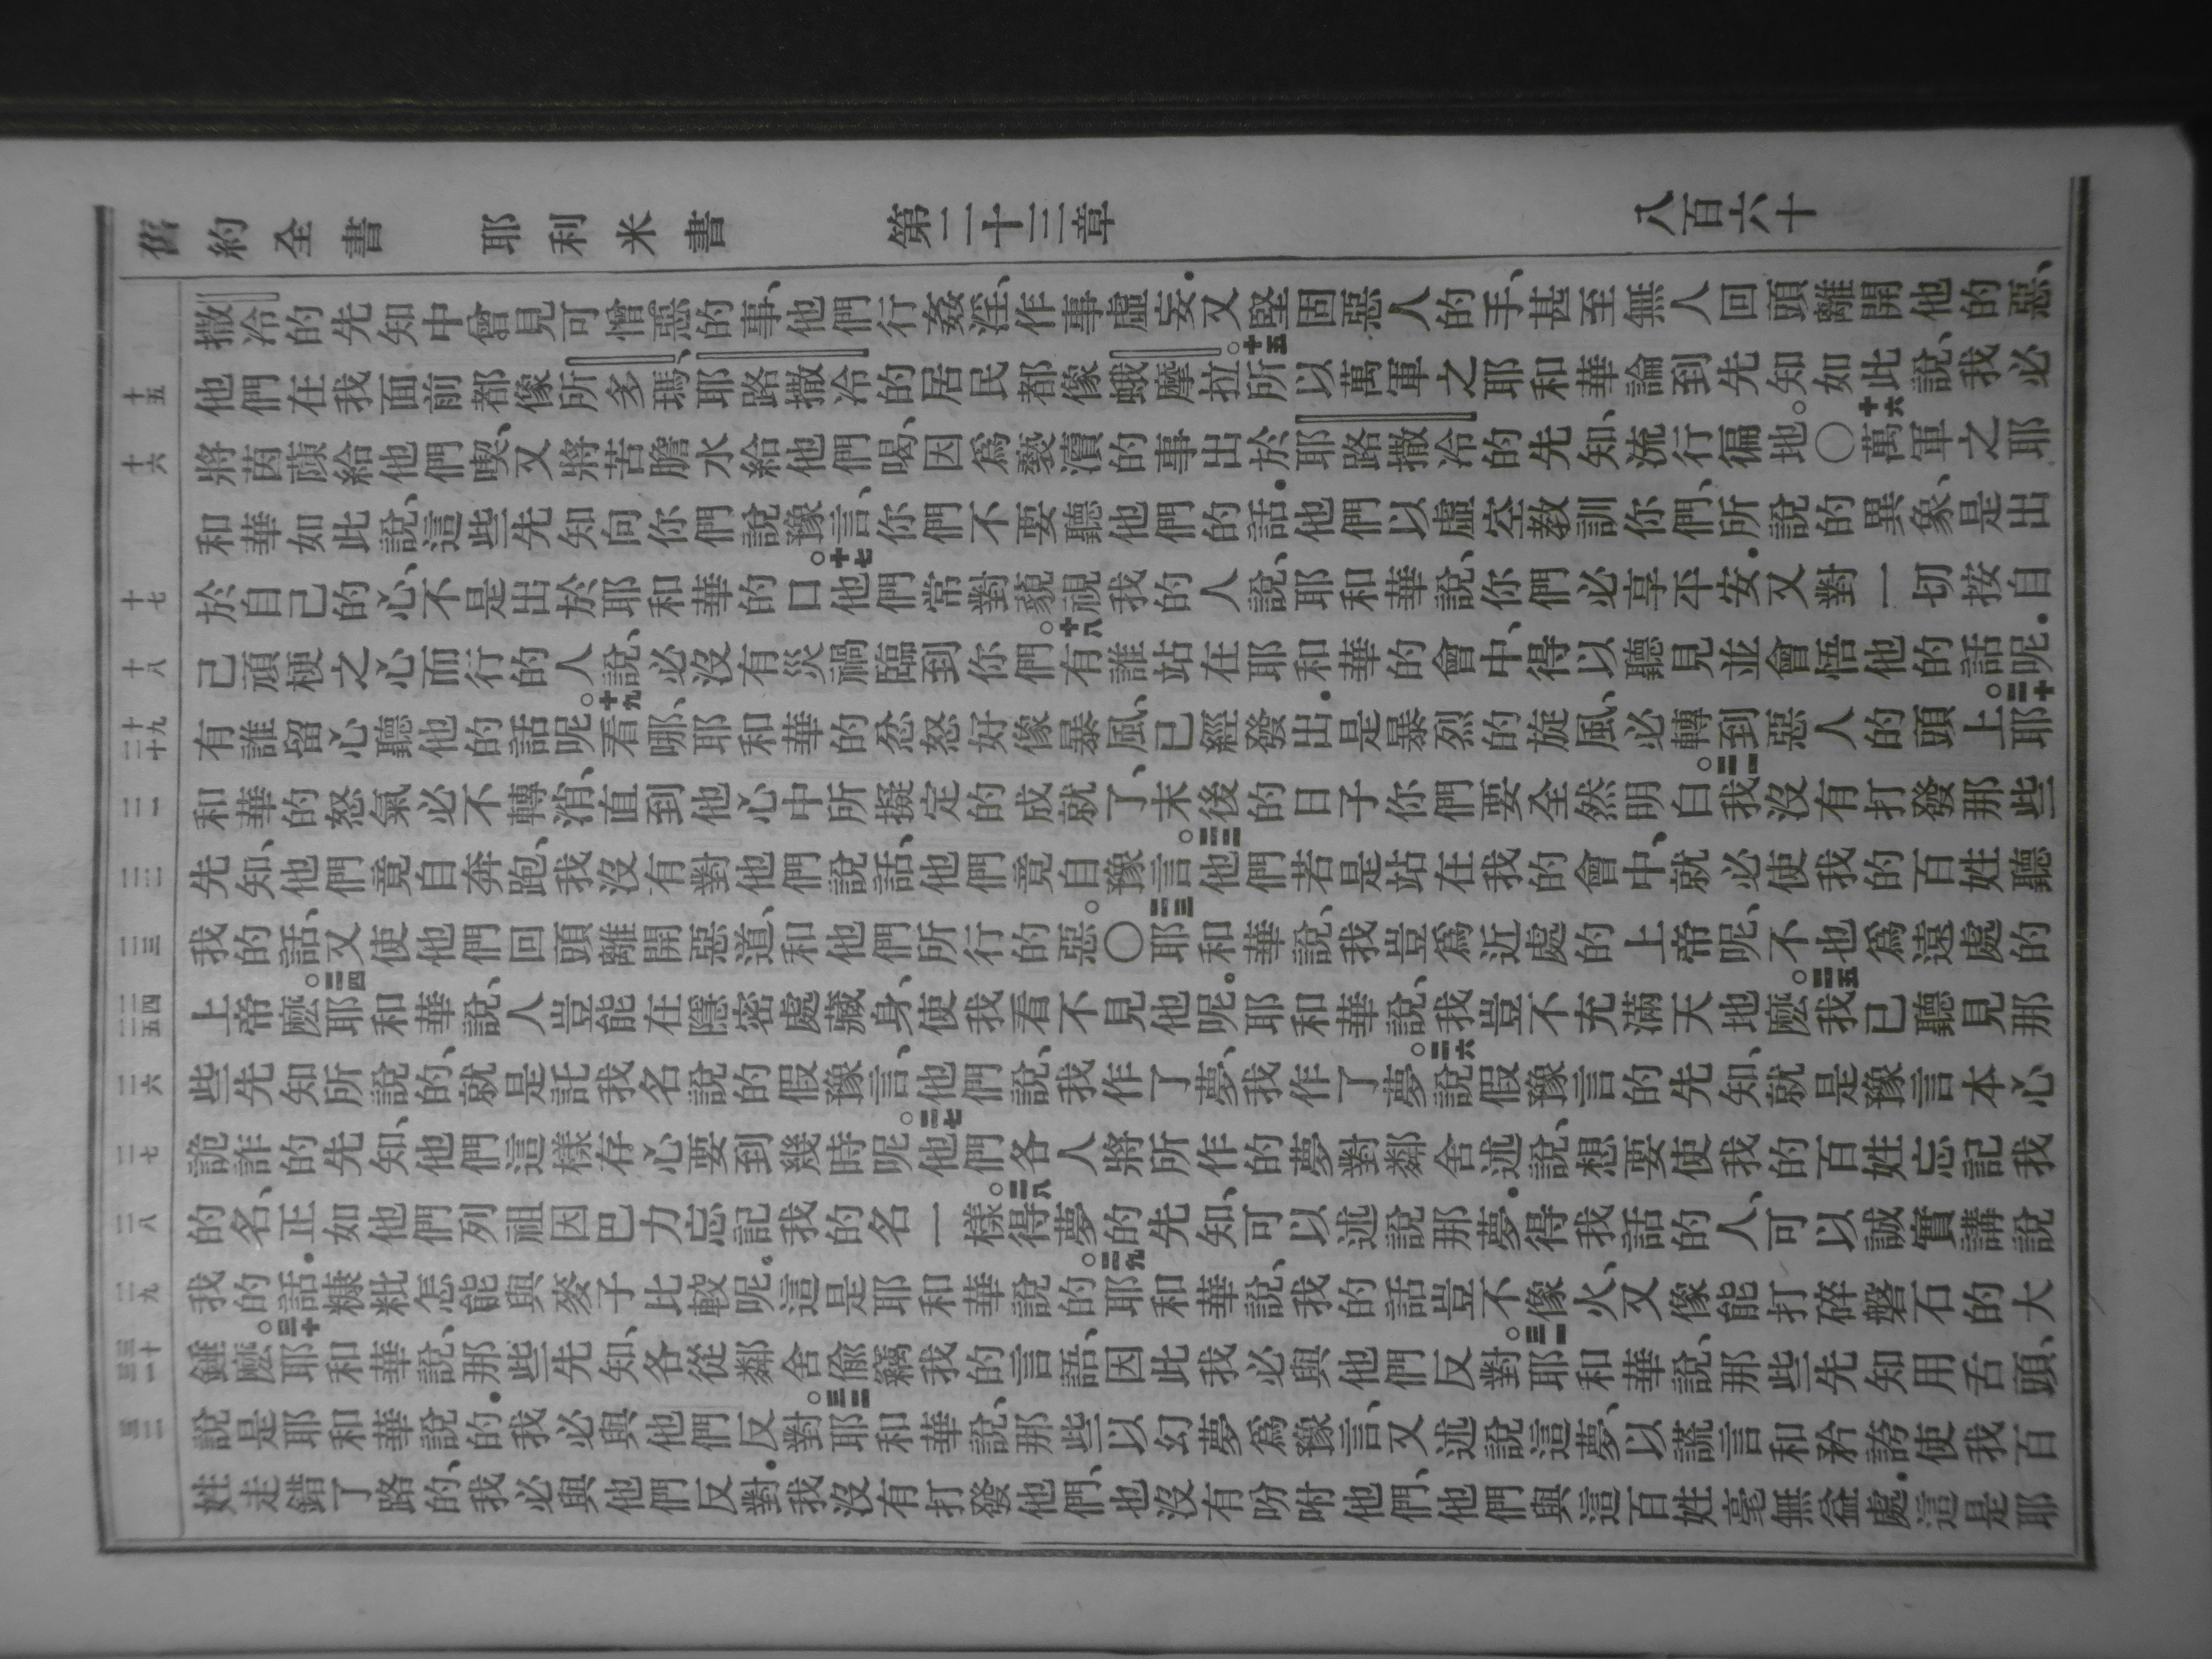 舊約全書 耶利米書 第二十三章 八百六十
撒冷的先知中曾見可憎惡的事、他們行姦淫、作事虛妄．又堅固惡人的手、甚至無人回頭離開他的惡、
十五 他們在我面前都像所多瑪、耶路撒冷的居民都像蛾摩拉。十五所以萬軍之耶和華論到先知如此說、我必
十六 將茵蔯給他們喫、又將苦膽水給他們喝、因爲褻瀆的事出於耶路撒冷的先知、流行徧地。〇十六萬軍之耶
和華如此說、這些先知向你們說豫言、你們不要聽他們的話．他們以虛空教訓你們、所說的異象、是出
十七 於自己的心、不是出於耶和華的口。十七他們常對藐視我的人說、耶和華說、你們必享平安．又對一切按自
十八 己頑梗之心而行的人說、必沒有災禍臨到你們。十八有誰站在耶和華的會中、得以聽見並會悟他的話呢．
十九 二十 有誰留心聽他的話呢。十九看哪、耶和華的忿怒好像暴風、已經發出．是暴烈的旋風、必轉到惡人的頭上。二十耶
二一 和華的怒氣必不轉消、直到他心中所擬定的成就了、末後的日子你們要全然明白。二一我沒有打發那些
二二 先知、他們竟自奔跑、我沒有對他們說話、他們竟自豫言。二二他們若是站在我的會中、就必使我的百姓聽
二三 我的話、又使他們回頭離開惡道、和他們所行的惡。〇二三耶和華說、我豈爲近處的上帝呢、不也爲遠處的
二四 二五 上帝麼。二四耶和華說、人豈能在隱密處藏身、使我看不見他呢．耶和華說、我豈不充滿天地麼。二五我已聽見那
二六 些先知所說的、就是託我名說的假豫言、他們說、我作了夢、我作了夢。二六說假豫言的先知、就是豫言本心
二七 詭詐的先知、他們這樣存心要到幾時呢。二七他們各人將所作的夢對鄰舍述說、想要使我的百姓忘記我
二八 的名、正如他們列祖因巴力忘記我的名一樣。二八得夢的先知、可以述說那夢．得我話的人、可以誠實講說
二九 我的話．糠粃怎能與麥子比較呢。這是耶和華說的。二九耶和華說、我的話豈不像火、又像能打碎磐石的大
三十 三一 錘麼。三十耶和華說、那些先知、各從鄰舍偷竊我的言語、因此我必與他們反對。三一耶和華說、那些先知用舌頭、
三二 說是耶和華說的．我必與他們反對。三二耶和華說、那些以幻夢爲豫言、又述說這夢、以謊言和矜誇使我百
姓走錯了路的、我必與他們反對．我沒有打發他們、也沒有吩咐他們、他們與這百姓毫無益處．這是耶